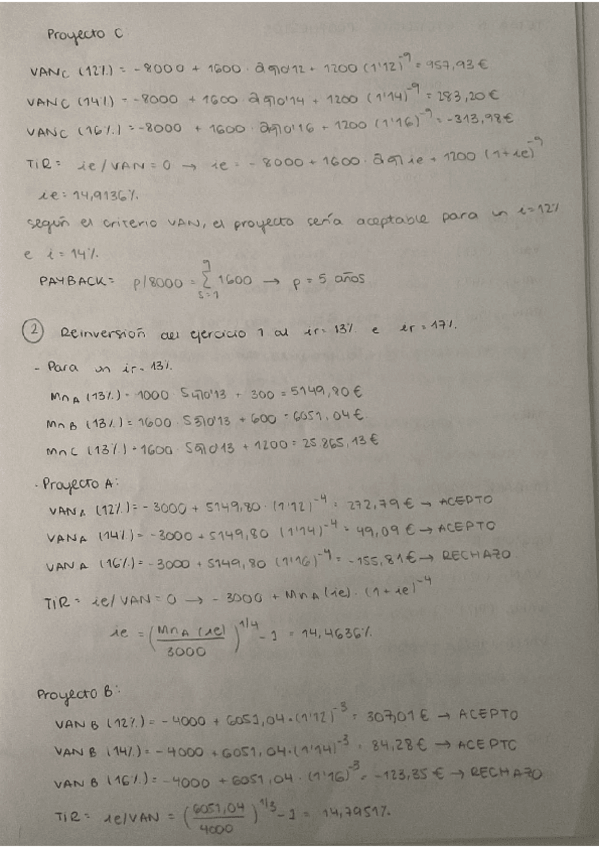 Proyecto C
VANC (12%) = -8000 + 1600 · a9¬0'12 + 1200 (1'12)^-9 = 957,93€
VANC (14%) = -8000 + 1600 · a9¬0'14 + 1200 (1'14)^-9 = 283,20€
VANC (16%) = -8000 + 1600 · a9¬0'16 + 1200 (1'16)^-9 = -313,98€
TIR = ie/VAN=0 → ie = -8000 + 1600 · a9¬ie + 1200 (1+ie)^-9
ie = 14,9136%
según el criterio VAN, el proyecto sería aceptable para un i=12%
e i = 14%.
PAYBACK = p/8000 = Σ 1600 → p = 5 años
② Reinversión del ejercicio 1 al ir = 13% e ir = 17%.
- Para un ir = 13%.
MnA (13%) = 1000 · S4¬0'13 + 300 = 5149,80€
MnB (13%) = 1600 · S3¬0'13 + 600 = 6051,04€
MnC (13%) = 1600 · S9¬0'13 + 1200 = 25865,13€
· Proyecto A:
VANA (12%) = -3000 + 5149,80 · (1'12)^-4 = 272,79€ → ACEPTO
VANA (14%) = -3000 + 5149,80 (1'14)^-4 = 49,09€ → ACEPTO
VANA (16%) = -3000 + 5149,80 (1'16)^-4 = -155,81€ → RECHAZO
TIR = ie/VAN=0 → -3000 + MnA (ie) · (1+ie)^-4
ie = (MnA (ie) / 3000)^1/4 - 1 = 14,4636%
Proyecto B:
VANB (12%) = -4000 + 6051,04 · (1'12)^-3 = 307,01€ → ACEPTO
VANB (14%) = -4000 + 6051,04 · (1'14)^-3 = 84,28€ → ACEPTO
VANB (16%) = -4000 + 6051,04 · (1'16)^-3 = -123,35€ → RECHAZO
TIR = ie/VAN = (6051,04 / 4000)^1/3 - 1 = 14,7951%